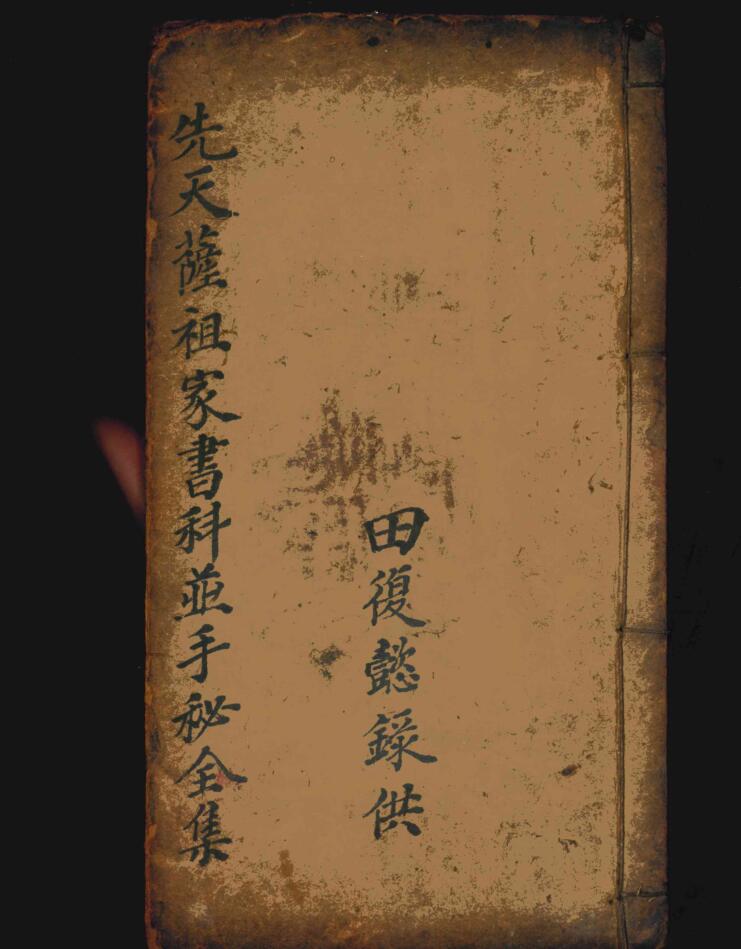 田復懿錄供
先天薩祖家書科並手秘全集